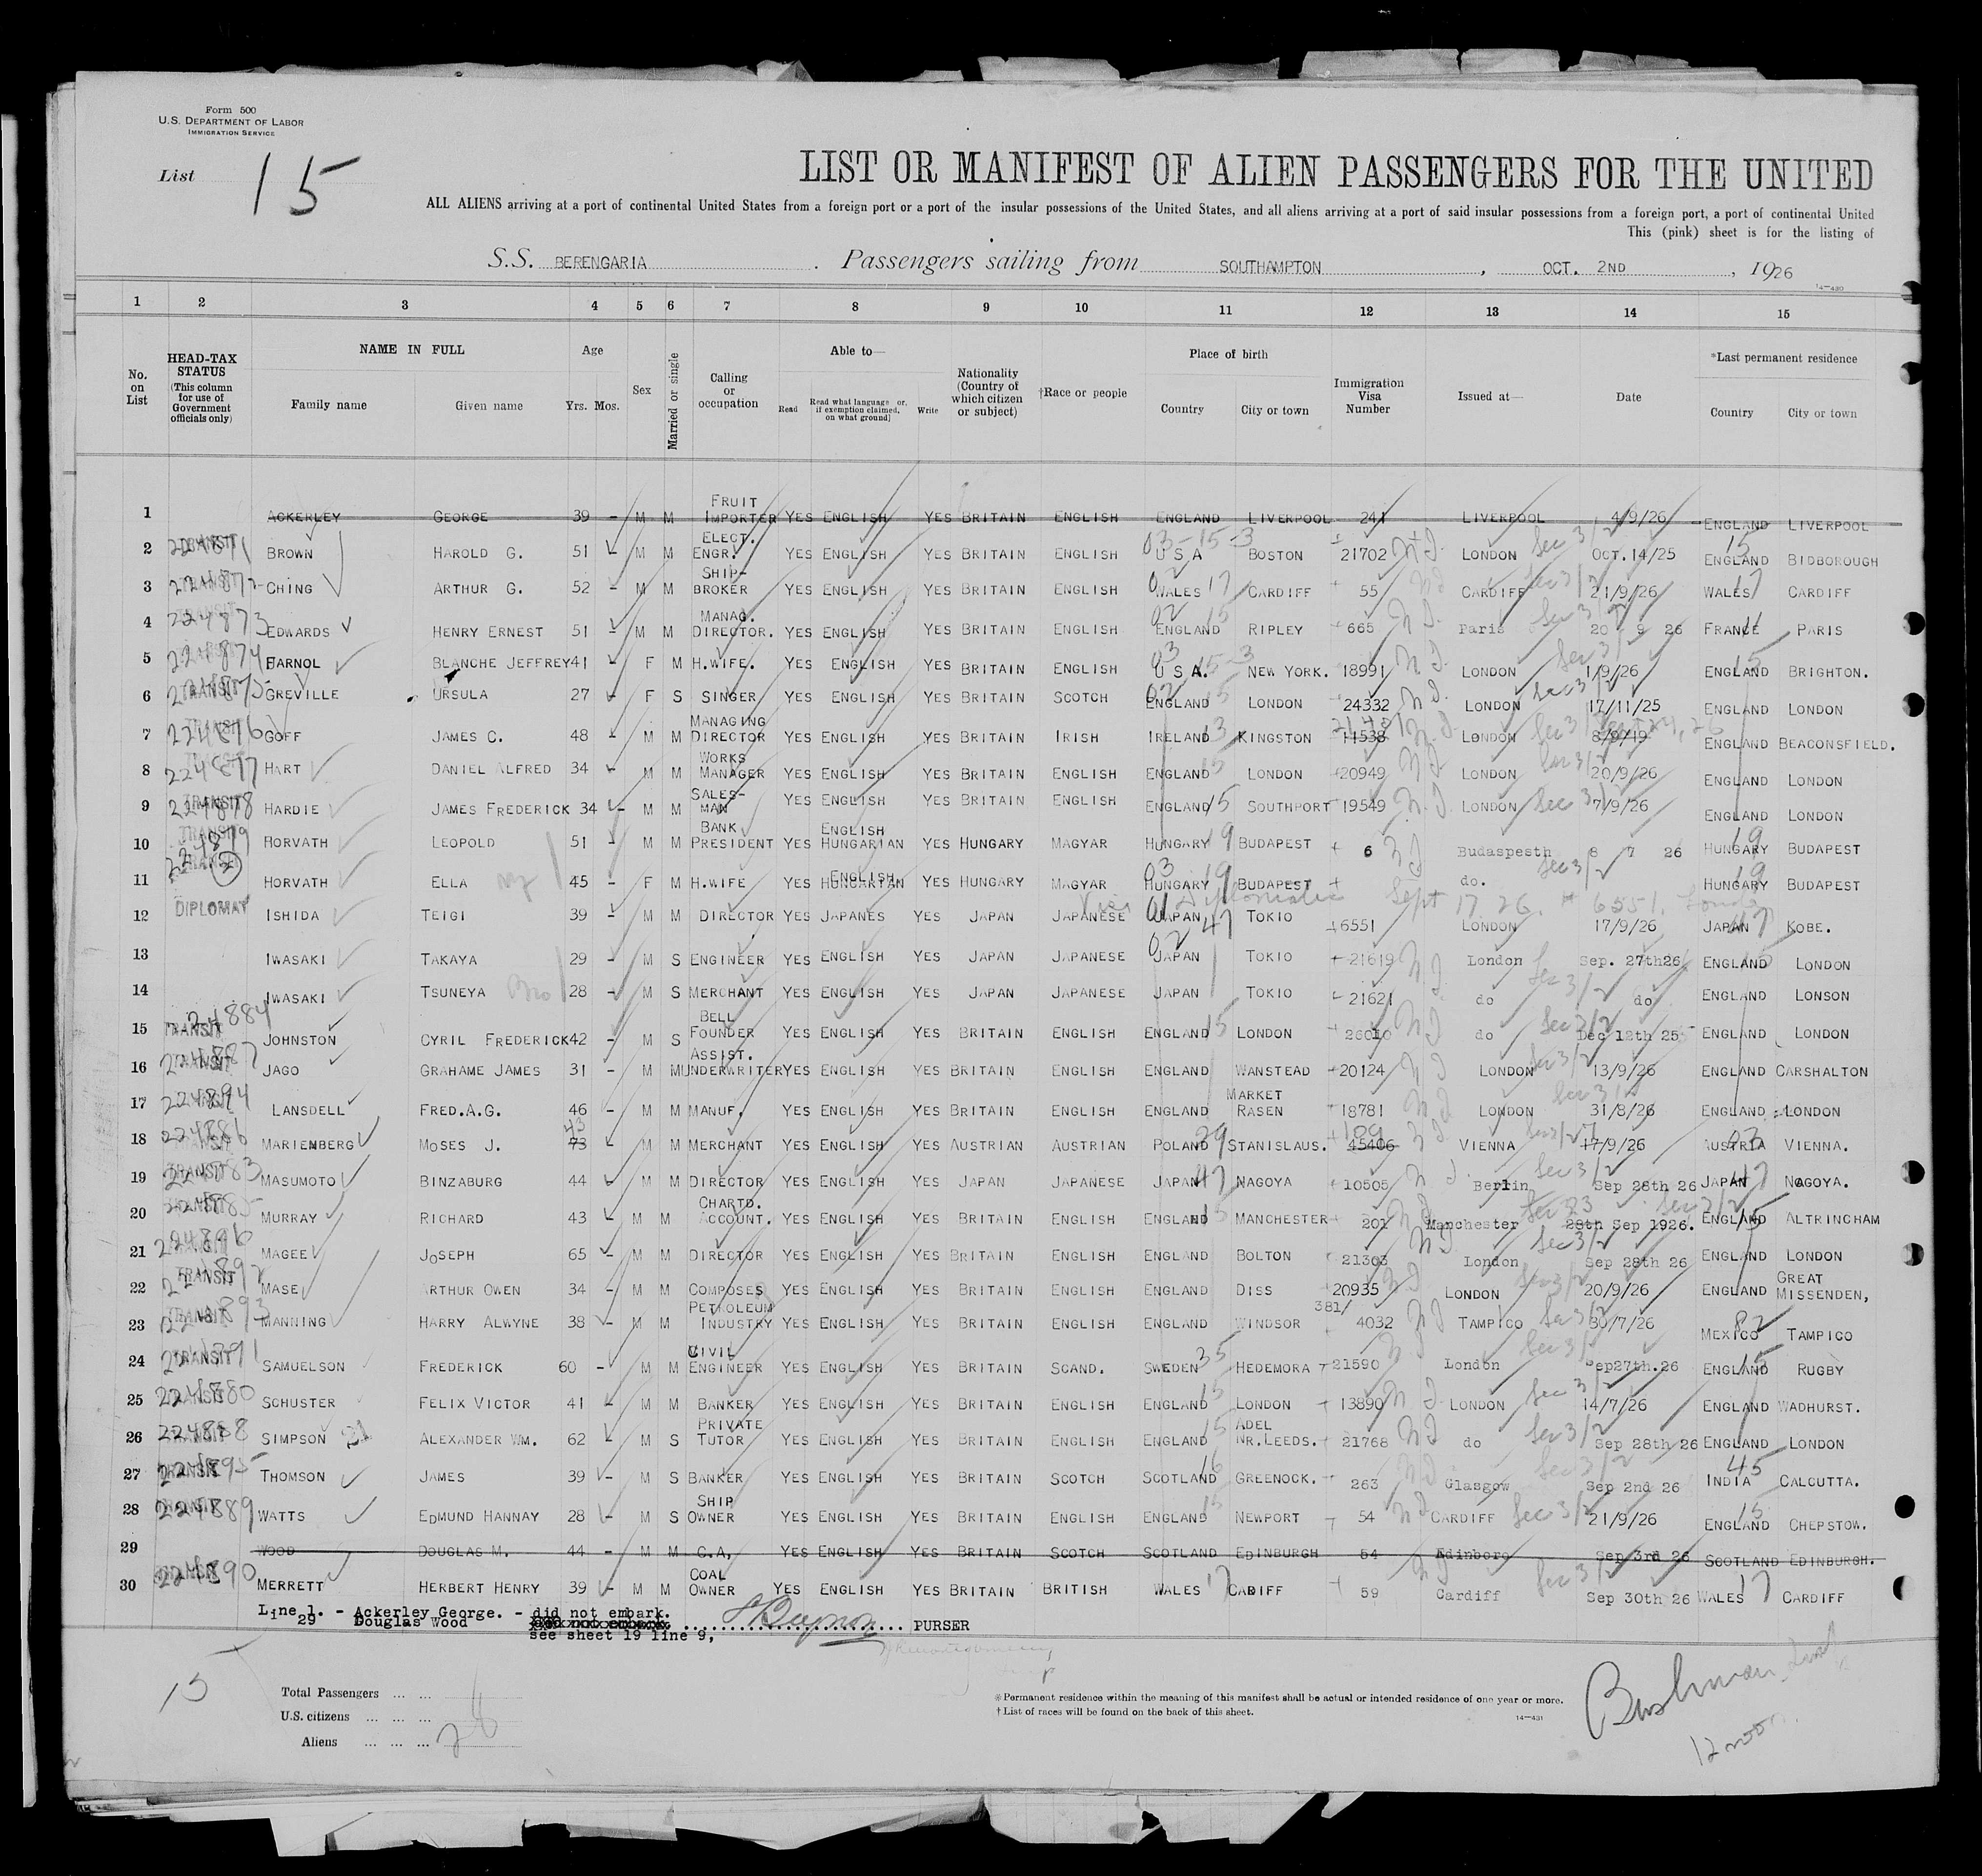 Form 500
U.S. DEPARTMENT OF LABOR
IMMIGRATION SERVICE
List 15
LIST OR MANIFEST OF ALIEN PASSENGERS FOR THE UNITED
ALL ALIENS arriving at a port of continental United States from a foreign port or a port of the insular possessions of the United States, and all aliens arriving at a port of said insular possessions from a foreign port, a port of continental United
This (pink) sheet is for the listing of
S.S. BERENGARIA. Passengers sailing from SOUTHAMPTON, OCT. 2ND, 1926
14—430
1 2 3 4 5 6 7 8 9 10 11 12 13 14 15
No. on List
HEAD-TAX STATUS (This column for use of Government officials only)
NAME IN FULL Family name Given name
Age Yrs. Mos.
Sex
Married or single
Calling or occupation
Able to— Read Read what language or, if exemption claimed, on what ground] Write
Nationality (Country of which citizen or subject)
†Race or people
Place of birth Country City or town
Immigration Visa Number
Issued at—
Date
*Last permanent residence Country City or town
1 ACKERLEY GEORGE 39 - M M FRUIT IMPORTER YES ENGLISH YES BRITAIN ENGLISH ENGLAND LIVERPOOL 241 LIVERPOOL 4/9/26 ENGLAND LIVERPOOL
2 TRANSIT 224871 BROWN HAROLD G. 51 - M M ELECT. ENGR. YES ENGLISH YES BRITAIN ENGLISH U S A BOSTON 21702 LONDON Sec 3/2 OCT.14/25 ENGLAND BIDBOROUGH
3 TRANSIT 224872 CHING ARTHUR G. 52 - M M SHIP- BROKER YES ENGLISH YES BRITAIN ENGLISH WALES 17 CARDIFF 55 CARDIFF Sec 3/2 21/9/26 WALES 17 CARDIFF
4 TRANSIT 224873 EDWARDS HENRY ERNEST 51 - M M MANAG. DIRECTOR. YES ENGLISH YES BRITAIN ENGLISH ENGLAND 15 RIPLEY 665 Paris Sec 3/2 20 9 26 FRANCE PARIS
5 224874 FARNOL BLANCHE JEFFREY 41 - F M H.WIFE. YES ENGLISH YES BRITAIN ENGLISH U S A. 15-3 NEW YORK. 18991 LONDON Sec 3/ 1/9/26 ENGLAND 15 BRIGHTON.
6 TRANSIT 224875 GREVILLE URSULA 27 - F S SINGER YES ENGLISH YES BRITAIN SCOTCH ENGLAND 15 LONDON 24332 LONDON Sec 3/2 17/11/25 ENGLAND LONDON
7 TRANSIT 224876 GOFF JAMES C. 48 - M M MANAGING DIRECTOR YES ENGLISH YES BRITAIN IRISH IRELAND 13 KINGSTON 11538 LONDON Sec 3/2 8/8/19 ENGLAND BEACONSFIELD.
8 224877 HART DANIEL ALFRED 34 - M M WORKS MANAGER YES ENGLISH YES BRITAIN ENGLISH ENGLAND 15 LONDON 20949 LONDON Sec 3/2 20/9/26 ENGLAND LONDON
9 TRANSIT 224878 HARDIE JAMES FREDERICK 34 - M M SALES- MAN YES ENGLISH YES BRITAIN ENGLISH ENGLAND 15 SOUTHPORT 19549 LONDON Sec 3/2 7/9/26 ENGLAND LONDON
10 TRANSIT HORVATH LEOPOLD 51 - M M BANK PRESIDENT YES ENGLISH HUNGARIAN YES HUNGARY MAGYAR HUNGARY 19 BUDAPEST 6 Budaspesth 8 7 26 HUNGARY 19 BUDAPEST
11 TRANSIT 2 HORVATH ELLA 45 - F M H.WIFE YES ENGLISH HUNGARIAN YES HUNGARY MAGYAR HUNGARY 19 BUDAPEST do. Sec 3/2 HUNGARY 19 BUDAPEST
Visa Diplomatic Sept 17 26. # 6551.
12 DIPLOMAT ISHIDA TEIGI 39 - M M DIRECTOR YES JAPANES YES JAPAN JAPANESE JAPAN 47 TOKIO 6551 LONDON 17/9/26 JAPAN 47 KOBE.
13 IWASAKI TAKAYA 29 - M S ENGINEER YES ENGLISH YES JAPAN JAPANESE JAPAN TOKIO 21619 London Sep. 27th26 ENGLAND LONDON
14 IWASAKI TSUNEYA Bro 28 - M S MERCHANT YES ENGLISH YES JAPAN JAPANESE JAPAN TOKIO 21621 do Sec 3/2 do ENGLAND LONSON
15 TRANSIT 224884 JOHNSTON CYRIL FREDERICK 42 - M S BELL FOUNDER YES ENGLISH YES BRITAIN ENGLISH ENGLAND 15 LONDON 26010 do Sec 3/2 Dec 12th 25 ENGLAND LONDON
16 TRANSIT 224887 JAGO GRAHAME JAMES 31 - M M ASSIST. UNDERWRITER YES ENGLISH YES BRITAIN ENGLISH ENGLAND WANSTEAD 20124 LONDON Sec 3/2 13/9/26 ENGLAND CARSHALTON
17 224894 LANSDELL FRED.A.G. 46 - M M MANUF. YES ENGLISH YES BRITAIN ENGLISH ENGLAND MARKET RASEN 18781 LONDON 31/8/26 ENGLAND LONDON
18 224886 MARIENBERG MOSES J. 73 43 - M M MERCHANT YES ENGLISH YES AUSTRIAN AUSTRIAN POLAND 29 STANISLAUS. 45406 VIENNA 17/9/26 AUSTRIA 03 VIENNA.
19 TRANSIT 224883 MASUMOTO BINZABURG 44 - M M DIRECTOR YES ENGLISH YES JAPAN JAPANESE JAPAN 47 NAGOYA 10505 Berlin Sec 3/2 Sep 28th 26 JAPAN 47 NAGOYA.
20 TRANSIT MURRAY RICHARD 43 - M M CHARTD. ACCOUNT. YES ENGLISH YES BRITAIN ENGLISH ENGLAND 15 MANCHESTER 201 Manchester 28th Sep 1926. ENGLAND 15 ALTRINCHAM
21 224896 MAGEE JOSEPH 65 - M M DIRECTOR YES ENGLISH YES BRITAIN ENGLISH ENGLAND BOLTON 21303 London Sec 3/2 Sep 28th 26 ENGLAND LONDON
22 TRANSIT 224892 MASE ARTHUR OWEN 34 - M M COMPOSES YES ENGLISH YES BRITAIN ENGLISH ENGLAND DISS 20935 LONDON Sec 3/2 20/9/26 ENGLAND GREAT MISSENDEN,
23 TRANSIT 224893 MANNING HARRY ALWYNE 38 - M M PETROLEUM INDUSTRY YES ENGLISH YES BRITAIN ENGLISH ENGLAND WINDSOR 381/ 4032 TAMPICO Sec 3/2 30/7/26 MEXICO 82 TAMPICO
24 TRANSIT 224891 SAMUELSON FREDERICK 60 - M M CIVIL ENGINEER YES ENGLISH YES BRITAIN SCAND. SWEDEN 35 HEDEMORA 21590 London Sec 3/ Sep27th.26 ENGLAND 15 RUGBY
25 TRANSIT 224880 SCHUSTER FELIX VICTOR 41 - M M BANKER YES ENGLISH YES BRITAIN ENGLISH ENGLAND 15 LONDON 13890 LONDON Sec 3/2 14/7/26 ENGLAND WADHURST.
26 224888 SIMPSON ALEXANDER WM. 62 - M S PRIVATE TUTOR YES ENGLISH YES BRITAIN ENGLISH ENGLAND 15 ADEL NR.LEEDS. 21768 do Sec 3/2 Sep 28th 26 ENGLAND LONDON
27 TRANSIT 224895 THOMSON JAMES 39 - M S BANKER YES ENGLISH YES BRITAIN SCOTCH SCOTLAND 16 GREENOCK. 263 Glasgow Sec 3/2 Sep 2nd 26 INDIA 45 CALCUTTA.
28 TRANSIT 224889 WATTS EDMUND HANNAY 28 - M S SHIP OWNER YES ENGLISH YES BRITAIN ENGLISH ENGLAND 15 NEWPORT 54 CARDIFF Sec 3/2 21/9/26 ENGLAND 15 CHEPSTOW.
29 WOOD DOUGLAS M. 44 - M M C.A. YES ENGLISH YES BRITAIN SCOTCH SCOTLAND EDINBURGH 54 Edinboro Sep 3rd 26 SCOTLAND EDINBURGH.
30 224890 MERRETT HERBERT HENRY 39 - M M COAL OWNER YES ENGLISH YES BRITAIN BRITISH WALES 17 CARDIFF 59 Cardiff Sec 3/2 Sep 30th 26 WALES 17 CARDIFF
Line 1. - Ackerley George. - did not embark.
29 Douglas Wood PURSER
see sheet 19 line 9,
15
Total Passengers ... ...
U.S. citizens ... ... ...
Aliens ... ... ... 28
*Permanent residence within the meaning of this manifest shall be actual or intended residence of one year or more.
†List of races will be found on the back of this sheet.
14—431
Bushman
12 noon.